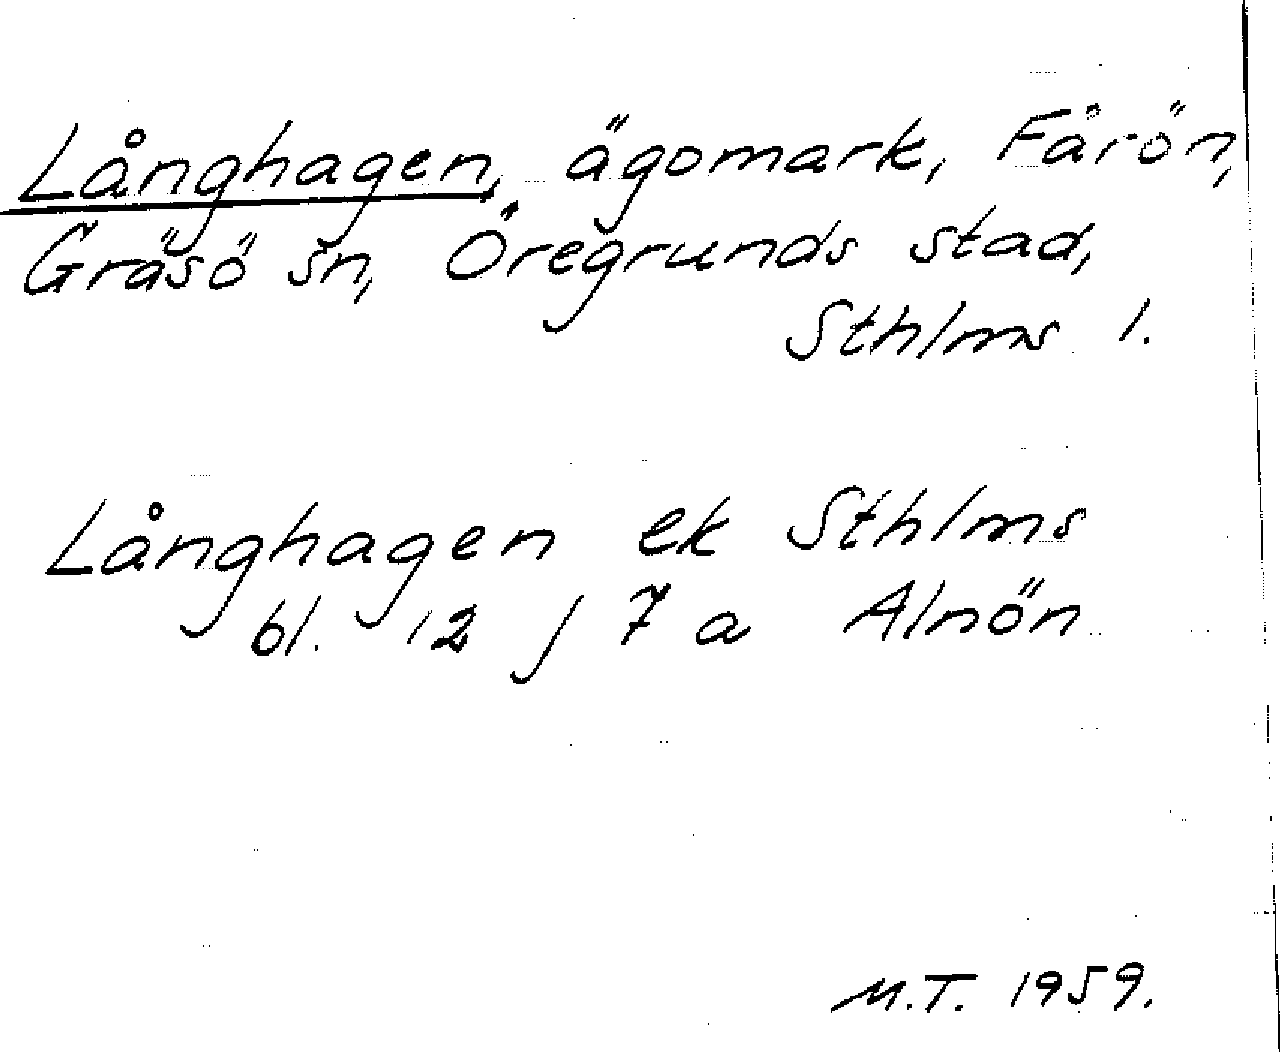 Långhagen, ägomark, Fårön,
Gräsö sn, Öregrunds stad,
Sthlms l.
Långhagen ek Sthlms
bl. 12 j 7 a Alnön
M.T. 1959.